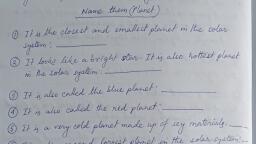 Name them (Planet)
① It is the closest and smallest planet in the solar
system:
② It looks like a bright star. It is also hottest planet
in the solar system:
③ It is also called the blue planet:
④ It is also called the red planet:
⑤ It is a very cold planet made up of icy materials:
largest planet in the solar system: